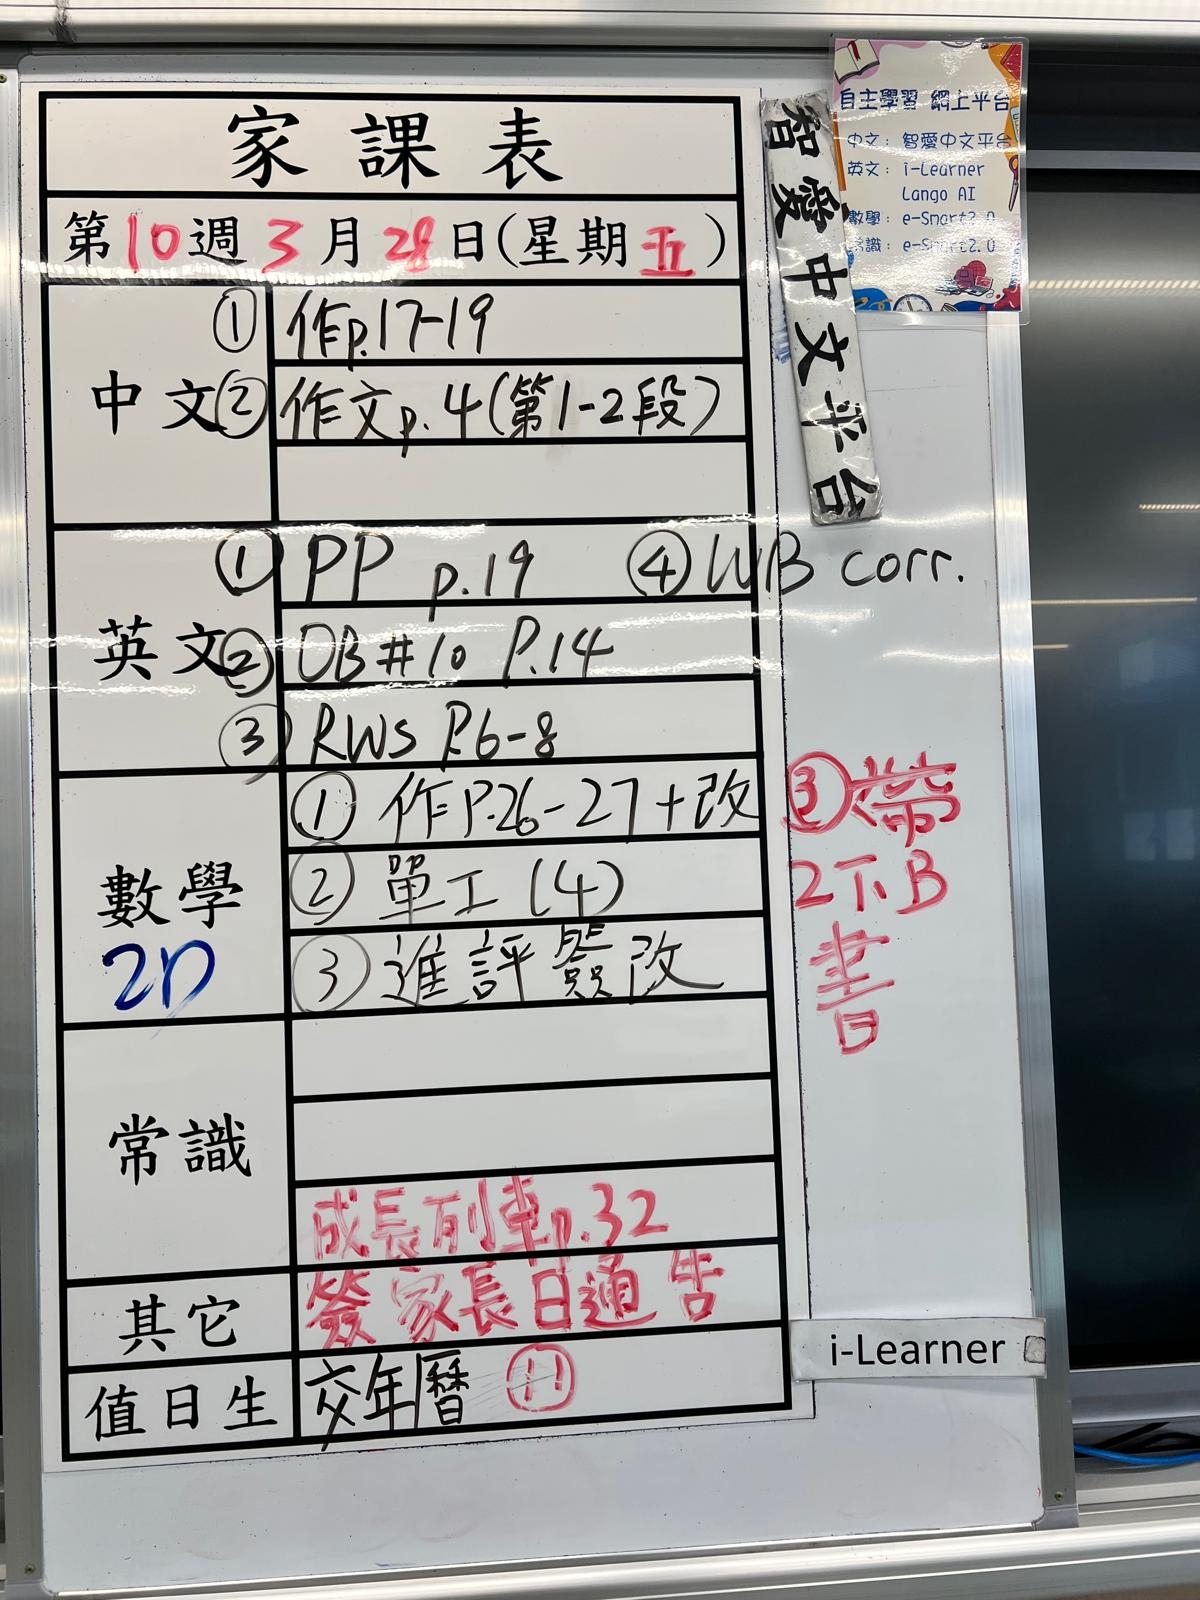 家課表
第10週3月28日(星期五)
中文
① 作p.17-19
② 作文p.4(第1-2段)
英文
① PP p.19 ④ WB corr.
② OB#10 P.14
③ RWS P.6-8
數學
2D
① 作P.26-27+改
② 單工(4)
③ 進評簽改
③帶
2下B
書
常識
成長列車p.32
其它
簽家長日通告
值日生
交年曆 ⑪
智愛中文平台
自主學習 網上平台
中文: 智愛中文平台
英文: i-Learner
Lango AI
數學: e-Smart2.0
常識: e-Smart2.0
i-Learner